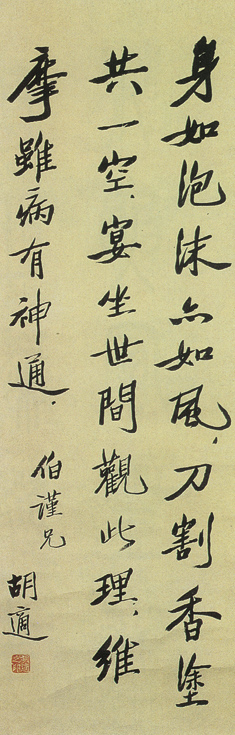 身如泡沫亦如風，刀割香塗
共一空，宴坐世間觀此理，維
摩雖病有神通．
伯謹兄
胡適